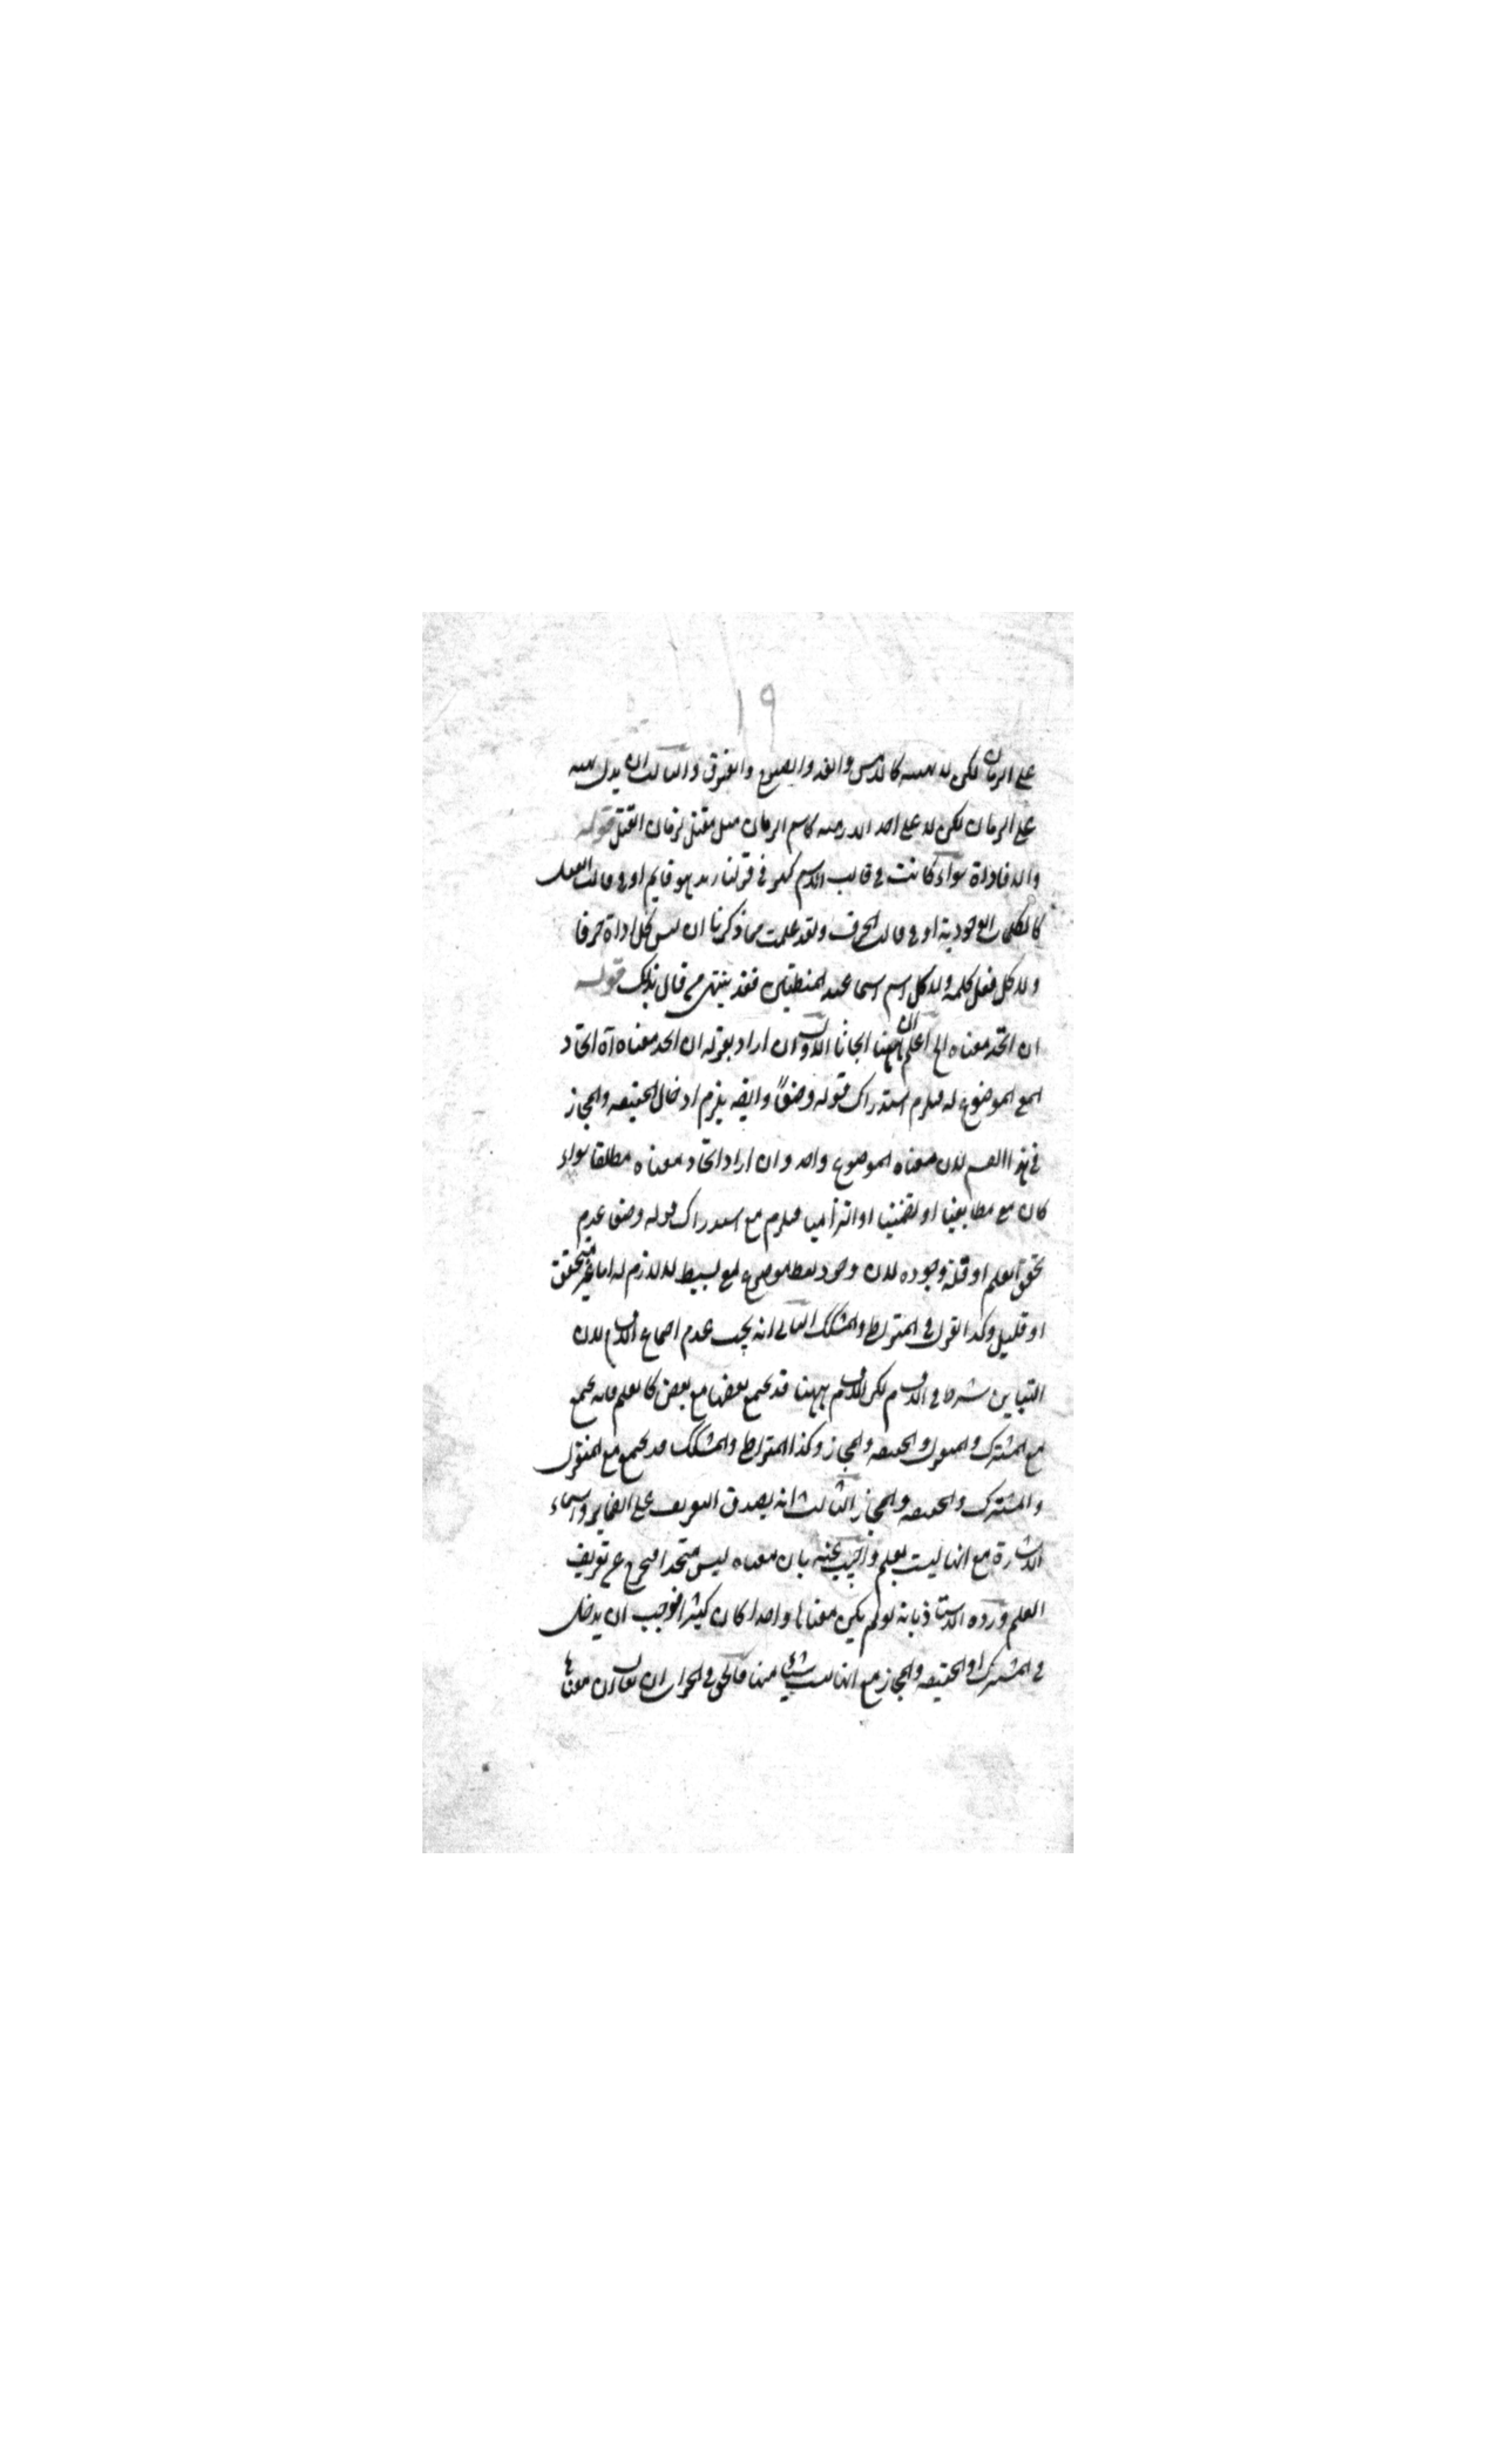 ١٩
على الزمان لكن لا بهيئته كالامس والغد والصبوح والغبوق والثالث ان يدل بهيئته
على الزمان لكن لا على احد الازمنة كاسم الزمان مثل مقتل لزمان القتل قوله
والا فاداة سواء كانت فى قالب الاسم كهو فى قولنا زيد هو قايم او فى قالب الفعل
كالكلمات الوجودية او فى قالب الحرف ولقد علمت مما ذكرنا ان ليس كل اداة حرفا
ولا كل فعل كلمة ولا كل اسم اسما عند المنطقيين فقد ينتهى قال بذلك قوله
ان اتحد معناه الخ اعلم ان ههنا ابحاثا الاول ان اراد بقوله ان اتحد معناه اه اتحاد
المعنى الموضوع له فيلزم استدراك قوله وضعًا وايضا يلزم ادخال الحقيقه والمجاز
فى هذا القسم لان معناه الموضوع واحد وان اراد اتحاد معناه مطلقا سواء
كان معنى مطابقيا او تضمنيا او التزاميا فيلزم مع استدراك قوله وضعا عدم
تحقق العلم او قلة وجوده لان وجود لفظ موضوع لمعنى بسيط لا لازم له اما غير متحقق
او قليل وكذا القول فى المتواطى والمشكك الثانى انه يجب عدم اجتماع الاقسام لان
التباين شرط فى الاقسام لكن الاقسام ههنا قد يجتمع بعضها مع بعض كالعلم فانه يجتمع
مع المشترك والمنقول والحقيقه والمجاز وكذا المتواطى والمشكك قد يجتمع مع المنقول
والمشترك والحقيقه والمجاز الثالث انه يصدق التعريف على الضماير واسماء
الاشارة مع انها ليست بعلم واجيب عنه بان معناه ليس متحدا فيخرج عن تعريف
العلم ورده الاستاذ بانه لو لم يكن معناها واحدا كان كثيرا فوجب ان يدخل
فى المشترك او الحقيقه والمجاز مع انها ليست شيئا منها فالحق فى الجواب ان يقال ان معناها